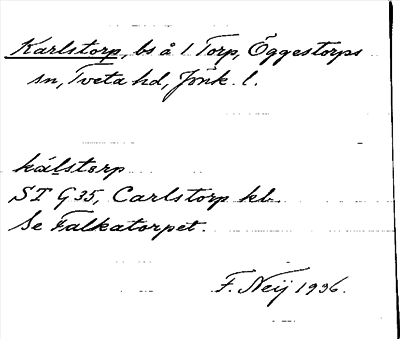 Karlstorp, bs å 1 Torp, Öggestorps
sn, Tveta hd, Jönk. l.
kálstɛrp
ST G 35, Carlstorp kb.
Se Falkatorpet.
F. Neij 1936.